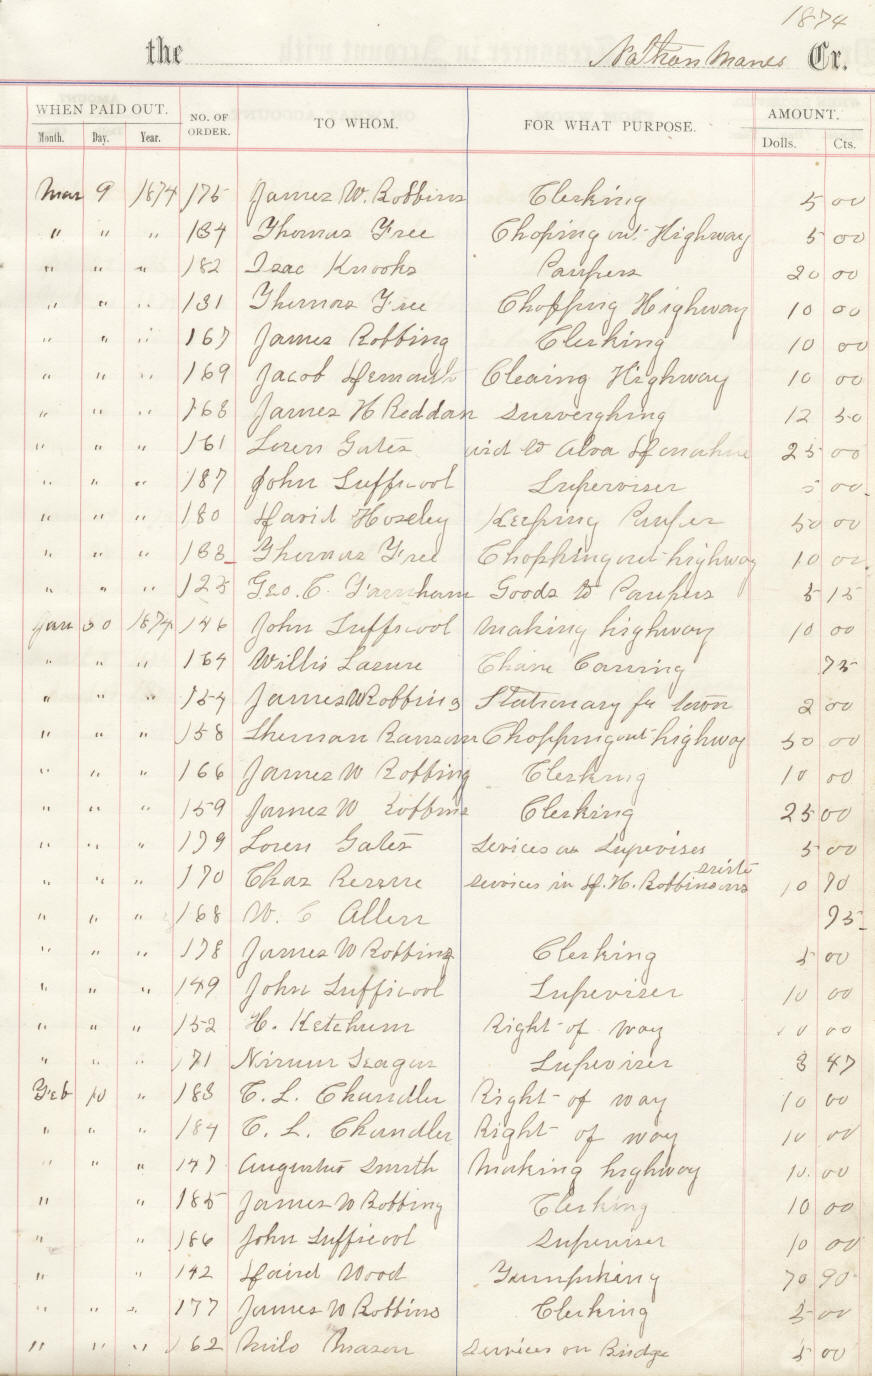 1874
the Nathan Manes Cr.
WHEN PAID OUT. NO. OF ORDER. TO WHOM. FOR WHAT PURPOSE. AMOUNT.
Month. Day. Year. Dolls. Cts.
Mar 9 1874 175 James W. Robbins Clerking 5 00
" " " 134 Thomas Free Choping out Highway 5 00
" " " 182 Isac Knooks Paupers 20 00
" " " 131 Thomas Free Chopping Highway 10 00
" " " 167 James Robbing Clerking 10 00
" " " 169 Jacob Clearing Highway 10 00
" " " 168 James H Reddan Surverghing 12 50
" " " 161 Loren Gates aid to Alva 25 00
" " " 187 John Sufficool Superviser 5 00
" " " 180 David Hozeley Keeping Pauper 50 00
" " " 133 Thomas Free Chopping out highway 10 00
" " " 123 Geo. C. Farnham Goods to Paupers 5 15
Jan 30 1874 146 John Sufficool Making highway 10 00
" " " 164 Willis Lazure Chane Carring 75
" " " 154 James W Robbing Stationary for town 2 00
" " " 158 Sherman Ransom Chopping out highway 50 00
" " " 166 James W Robbing Clerking 10 00
" " " 159 James W Robbins Clerking 25 00
" " " 179 Loren Gates Services as Superviser 5 00
" " " 170 Chas Services in H. Robbinsons 10 70
" " " 168 W. C Allen 75
" " " 178 James W Robbing Clerking 5 00
" " " 149 John Sufficool Supeviser 10 00
" " " 152 H. Ketchum Right of way 10 00
" " " 171 Seagur Superviser 8 47
Feb 10 " 183 C. L. Chandler Right of way 10 00
" " " 184 C. L. Chandler Right of way 10 00
" " " 147 Augustus Smith Making highway 10 00
" " 185 James W Robbing Clerking 10 00
" " 186 John Sufficool Superviser 10 00
" " 142 David Wood 70 90
" " " 177 James W Robbins Clerking 5 00
" " " 162 Milo Mason Services on Bridge 5 00